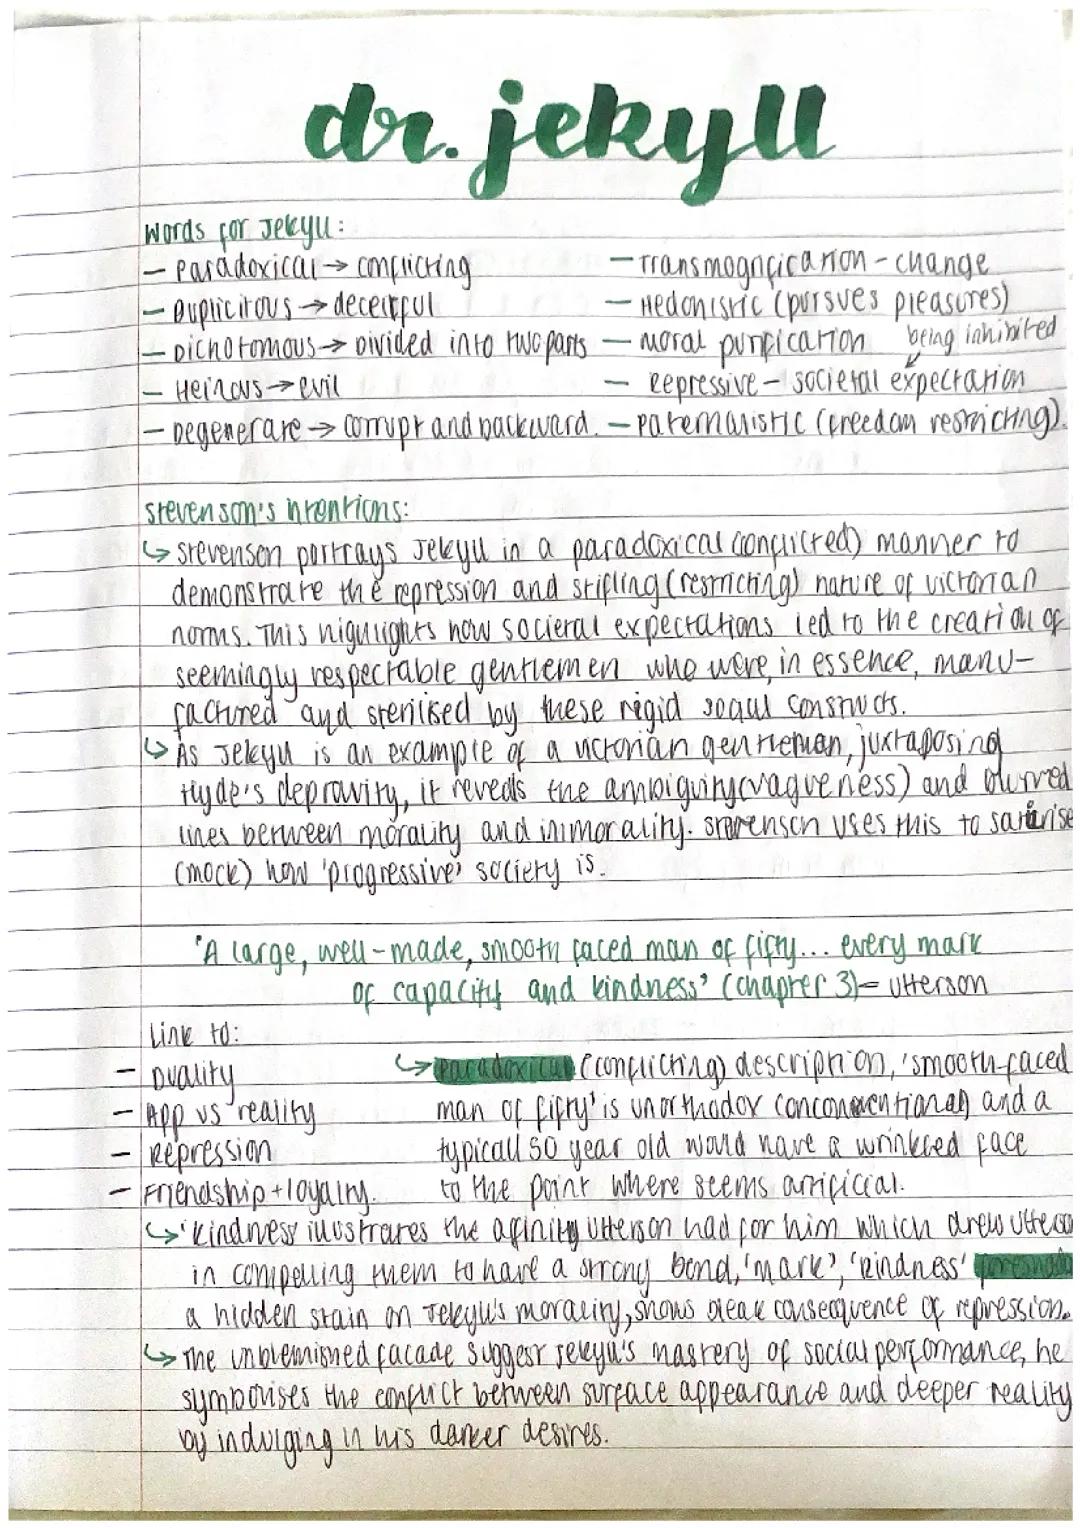 dr. jekyll
Words for Jekyll:
– Paradoxical → conflicting
– Duplicitous → deceitful
– Dichotomous → Divided into two parts
– Heinous → evil
– Degenerate → corrupt and backward.
– Transmogrification - change
– Hedonistic (pursues pleasures)
– moral purification
being inhibited
– Repressive – societal expectation
– Paternalistic (freedom restricting).
Stevenson's intentions:
↳ Stevenson portrays Jekyll in a paradoxical (conflicted) manner to
demonstrate the repression and stifling (restricting) nature of victorian
norms. This highlights how societal expectations led to the creation of
seemingly respectable gentlemen who were, in essence, manu-
factured and sterilised by these rigid social constructs.
↳ As Jekyll is an example of a victorian gentleman, juxtaposing
Hyde's depravity, it reveals the ambiguity (vagueness) and blurred
lines between morality and immorality. Stevenson uses this to satirise
(mock) how 'progressive' society is.
'A large, well-made, smooth faced man of fifty... every mark
of capacity and kindness' (chapter 3) – Utterson
Link to:
– Duality
– App vs reality
– Repression
– Friendship + loyalty.
↳ paradoxical (conflicting) description, 'smooth-faced
man of fifty' is unorthodox and a
typicall 50 year old would have a wrinkled face
to the point where seems artificial.
↳ 'kindness' illustrates the affinity Utterson had for him which drew Utterson
in compelling them to have a strong bond, 'mark', 'kindness'
a hidden stain on Jekyll's morality, shows bleak consequence of repression.
↳ The unblemished facade suggest Jekyll's mastery of social performance, he
symbolises the conflict between surface appearance and deeper reality
by indulging in his darker desires.